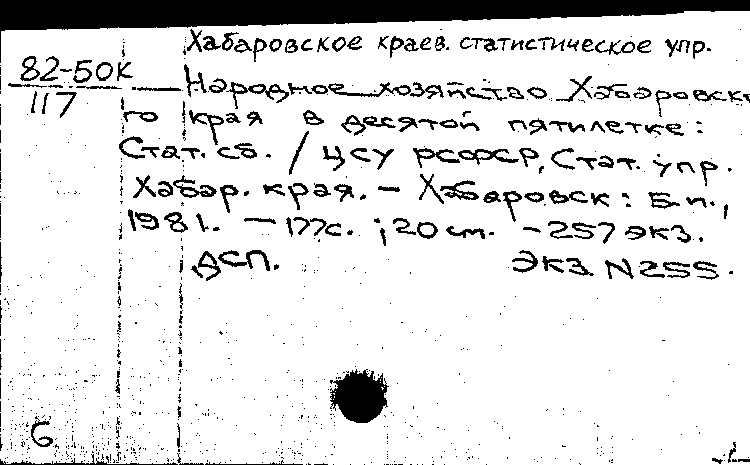 Хабаровское краев. статистическое упр.
82-50К
117
Народное хозяйство Хабаровско
го края в десятой пятилетке:
Стат. сб. / ЦСУ РСФСР, Стат. упр.
Хабар. края. – Хабаровск: Б.и.,
1981. – 177с. ; 20 см. – 257 экз.
ДСП. Экз. N255.
6